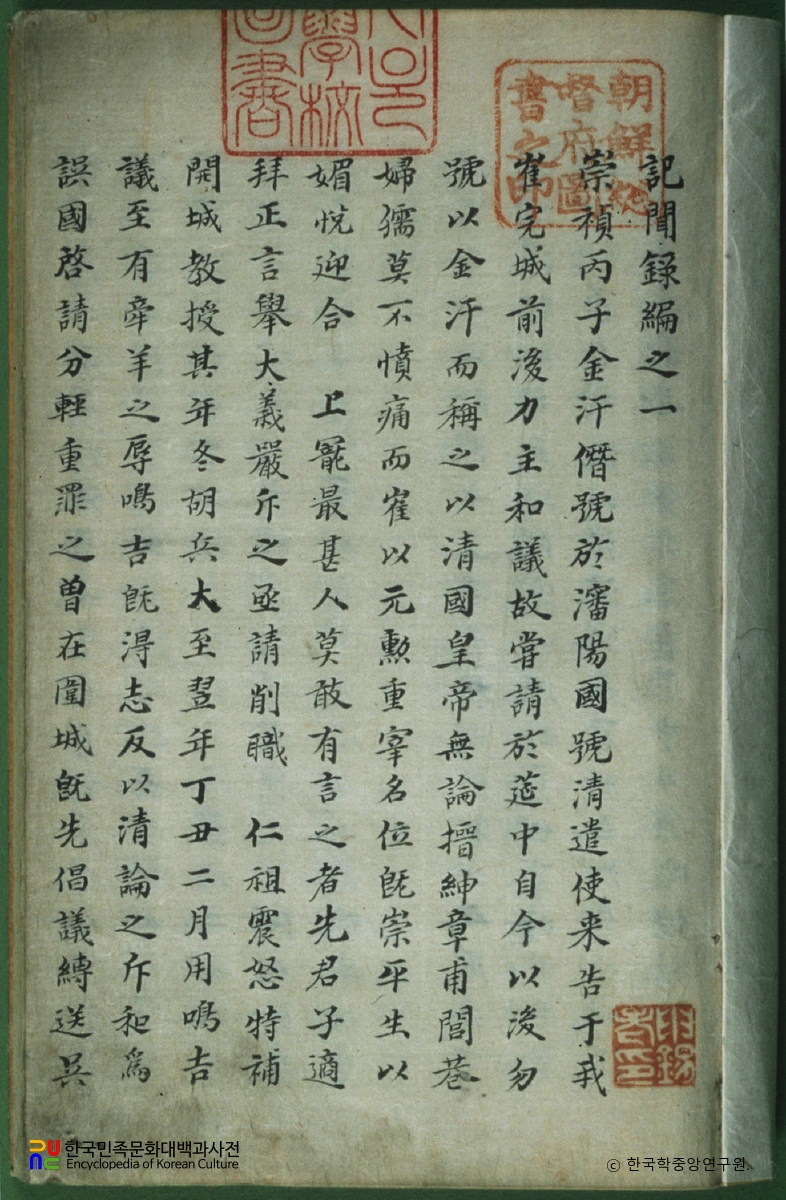 記聞錄編之一
崇禎丙子金汗僭號於瀋陽國號清遣使来告于我
崔完城前後力主和議故嘗請於莚中自今以後勿
號以金汗而稱之以清國皇帝無論搢紳章甫閭巷
婦孺莫不憤痛而崔以元勲重宰名位旣崇平生以
媚悅迎合 上寵最甚人莫敢有言之者先君子適
拜正言舉大義嚴斥之亟請削職 仁祖震怒特補
開城教授其年冬胡兵大至翌年丁丑二月用鳴吉
議至有牽羊之辱鳴吉旣淂志反以清論之斥和爲
誤國啓請分輕重罪之曽在圍城旣先倡議縛送吴
朝鮮総
督府圖
書之印
學校
圖書
한국민족문화대백과사전
Encyclopedia of Korean Culture
© 한국학중앙연구원